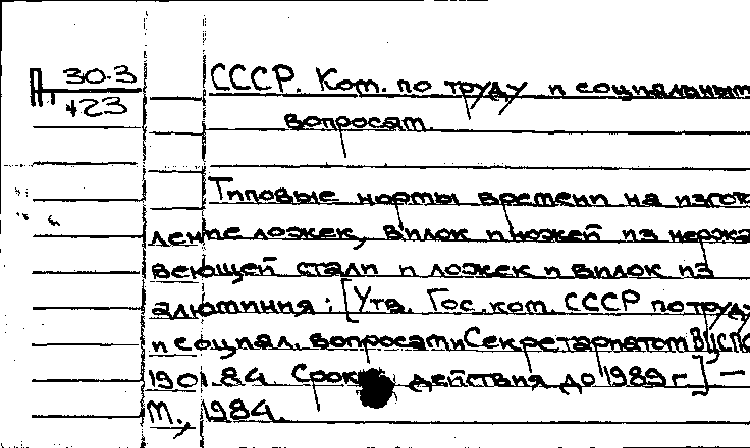 П 30.3 СССР. Ком. по труду и социальным
т 423
вопросам.
Типовые нормы времени на изготов
ление ложек, вилок и ножей из нержа
веющей стали и ложек и вилок из
алюминия: [Утв. Гос. ком. СССР по труду
и социал. вопросам и Секретариатом ВЦСПС
19.01.84. Срок действия до 1989 г.] —
М., 1984.